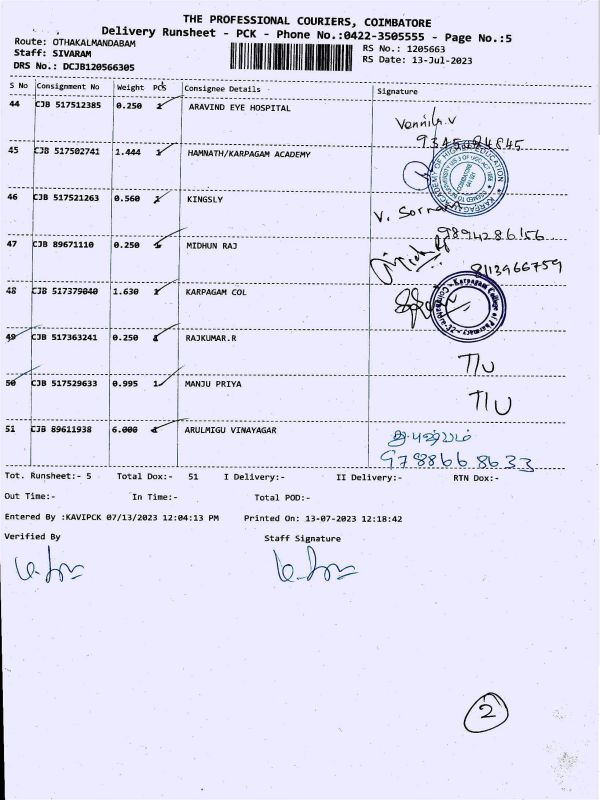 THE PROFESSIONAL COURIERS, COIMBATORE
Delivery Runsheet - PCK - Phone No.:0422-3505555 - Page No.:5
Route: OTHAKALMANDABAM RS No.: 1205663
Staff: SIVARAM RS Date: 13-Jul-2023
DRS No.: DCJB120566305
S No Consignment No Weight PCS Consignee Details Signature
44 CJB 517512385 0.250 1 ARAVIND EYE HOSPITAL
Vennila.V
9345484845
45 CJB 517502741 1.444 1 HAMNATH/KARPAGAM ACADEMY
KARPAGAM ACADEMY OF HIGHER EDUCATION
46 CJB 517521263 0.560 1 KINGSLY
V. Sorna
9894286156
47 CJB 89671110 0.250 1 MIDHUN RAJ
8113966759
48 CJB 517379040 1.630 1 KARPAGAM COL
Karpagam College of Pharmacy
Coimbatore-32
49 CJB 517363241 0.250 1 RAJKUMAR.R
T/U
50 CJB 517529633 0.995 1 MANJU PRIYA
T/U
51 CJB 89611938 6.000 1 ARULMIGU VINAYAGAR
9788668633
Tot. Runsheet:- 5 Total Dox:- 51 I Delivery:- II Delivery:- RTN Dox:-
Out Time:- In Time:- Total POD:-
Entered By :KAVIPCK 07/13/2023 12:04:13 PM Printed On: 13-07-2023 12:18:42
Verified By Staff Signature
2